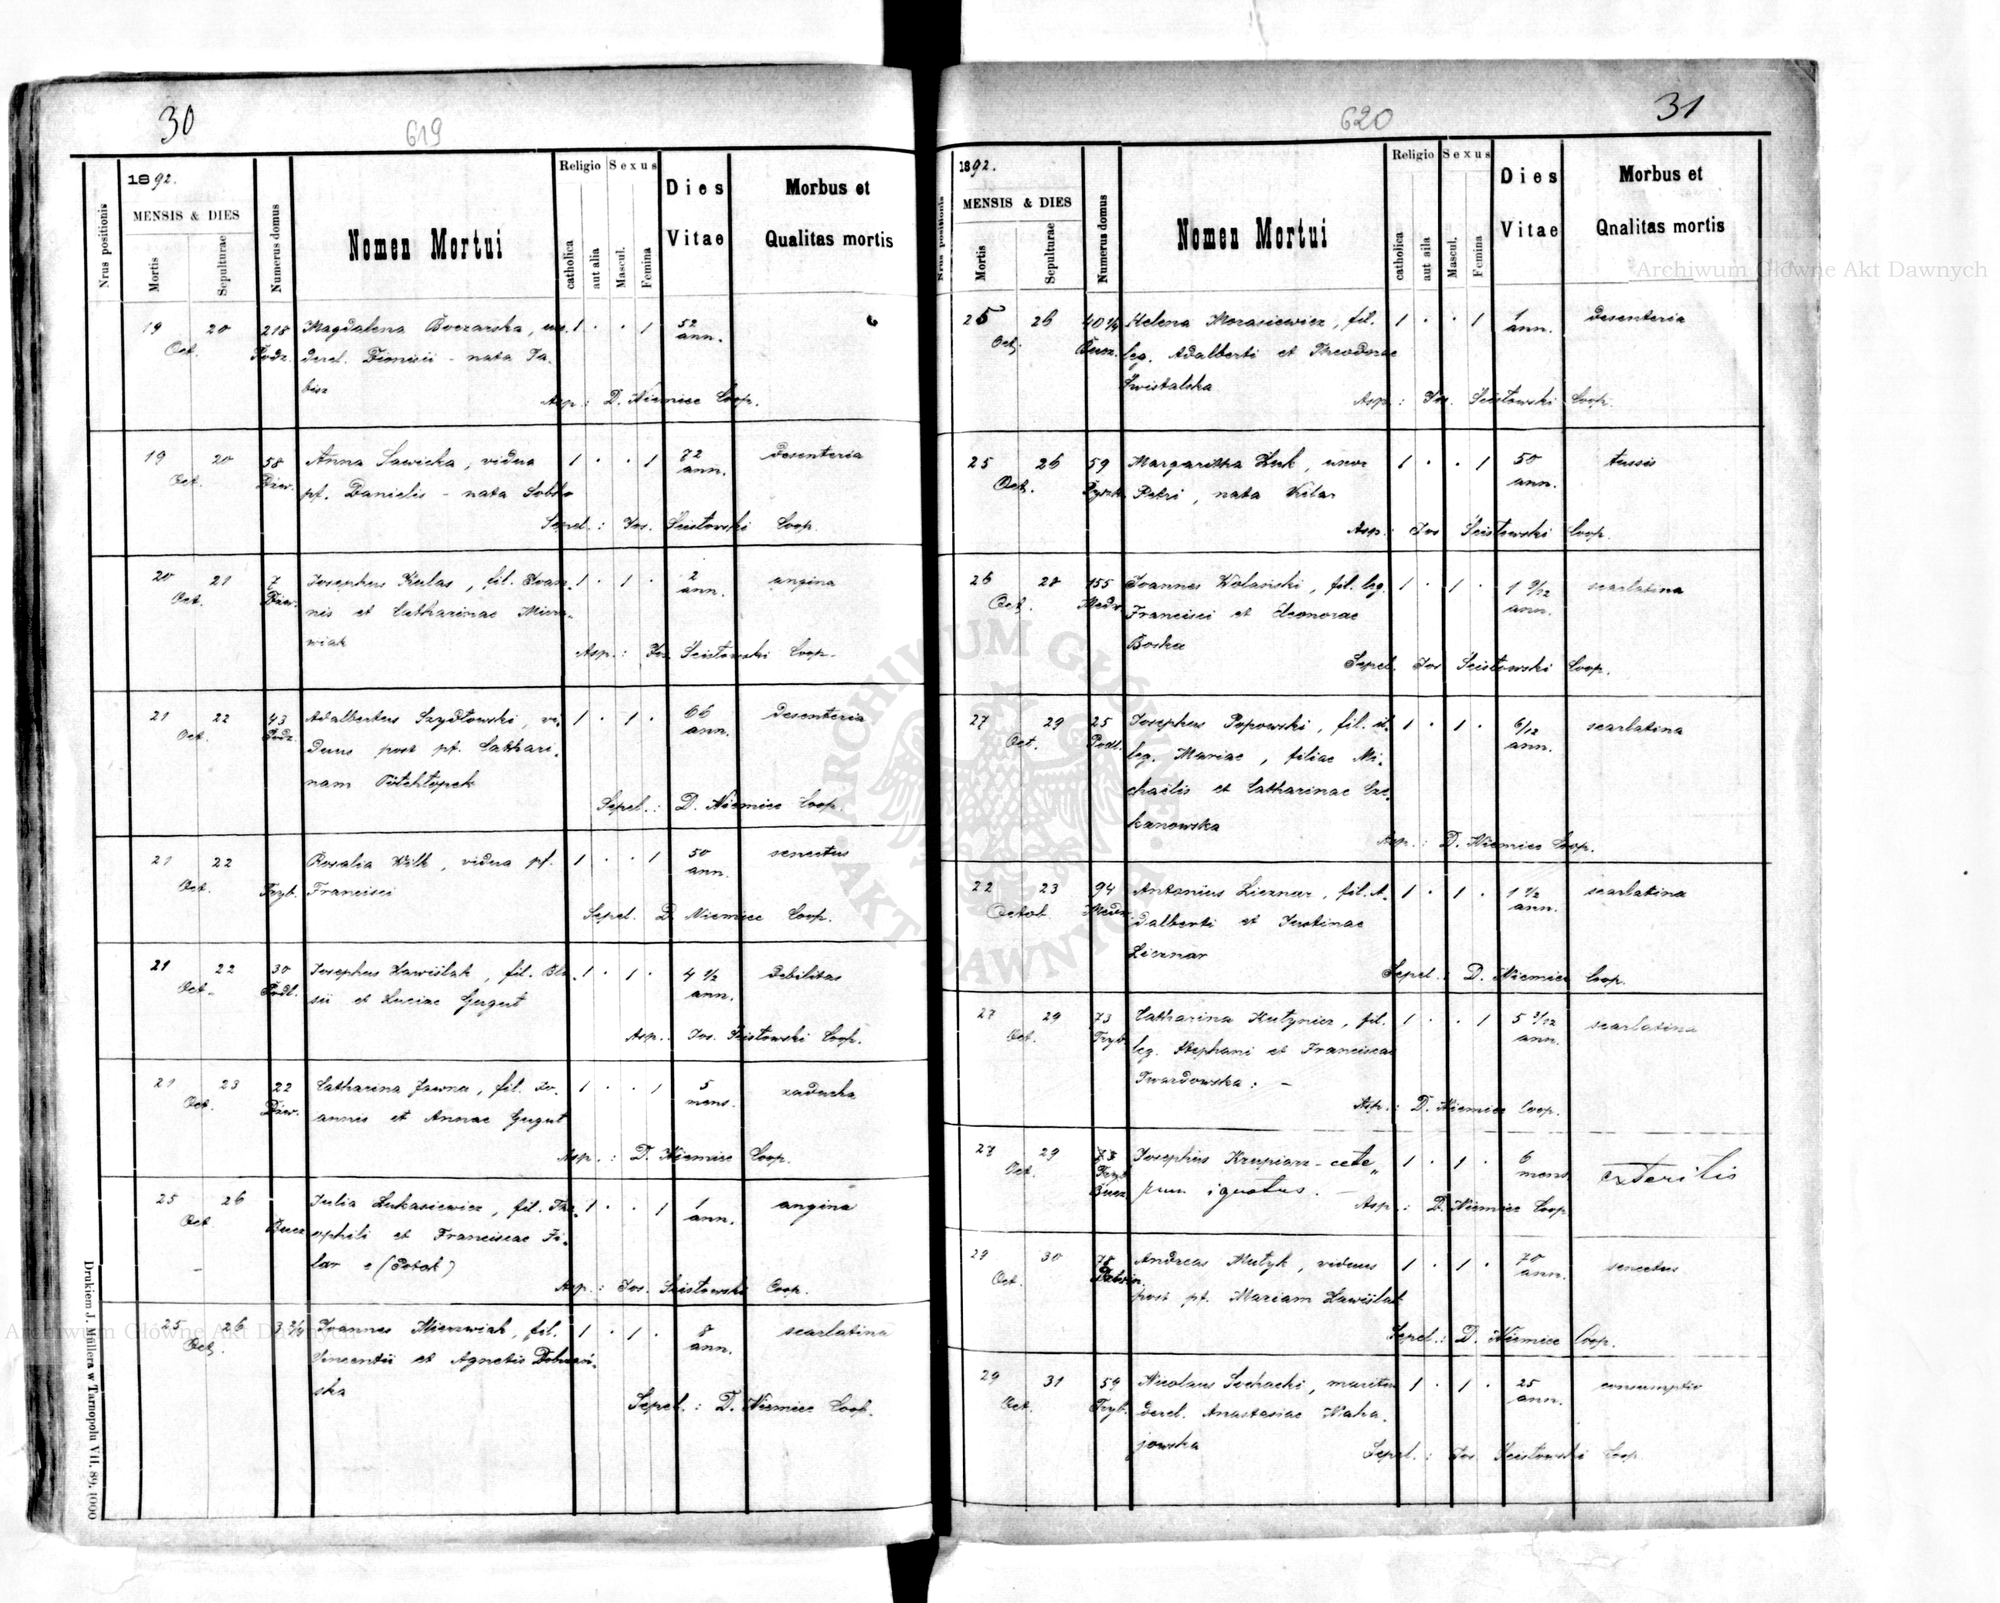 30
619
Nrus positionis
1892.
MENSIS & DIES
Mortis
Sepulturae
Numerus domus
Nomen Mortui
Religio
catholica
aut alia
Sexus
Mascul.
Femina
Dies
Vitae
Morbus et
Qualitas mortis
19 20 218 Magdalena 1 . . 1 52
Oct. Podz. derel. Dionisii - nata Ta- ann.
bisz
Asp.: D. Niemiec Coop.
19 20 58 Anna Sawicka, vidua 1 . . 1 72 desenteria
Oct. Dźw. pt. Danielis - nata ann.
Sepel.: Jos. Szistowski Coop.
20 21 7 Josephus Kulas, fil. Joan- 1 . 1 . 2 angina
Oct. Dźw. nis et Catharinae ann.
wiak
Asp.: Jos. Szistowski Coop.
21 22 43 Adalbertus Szydłowski, vi- 1 . 1 . 66 desenteria
Oct. Podz. duus post pt. Cathari- ann.
nam
Sepel.: D. Niemiec Coop.
21 22 Rosalia Wilk, vidua pt. 1 . . 1 50 senectus
Oct. Tryb. Francisci ann.
Sepel. D. Niemiec Coop.
21 22 30 Josephus Zawiślak, fil. Bla- 1 . 1 . 4 1/2 debilitas
Oct. Podl. sii et Luciae Gugut ann.
Asp.: Jos. Szistowski Coop.
21 23 22 Catharina Jawna, fil. Jo- 1 . . 1 5 zaducha
Oct. Dźw. annis et Annae Gugut mens.
Asp.: D. Niemiec Coop.
25 26 Julia Łukasiewicz, fil. 1 . . 1 1 angina
Oct. Bucz ophili et Franciscae Fi- ann.
lar e (Potok)
Asp.: Jos. Szistowski Coop.
25 26 3 2/4 Joannes Mierzwiak, fil. 1 . 1 . 8 scarlatina
Oct. Vincentii et Agnetis Dobrzań- ann.
ska
Sepel.: D. Niemiec Coop.
Drukiem J. Müllera w Tarnopolu VII. 89. 1000
31
620
Nrus positionis
1892.
MENSIS & DIES
Mortis
Sepulturae
Numerus domus
Nomen Mortui
Religio
catholica
aut aila
Sexus
Mascul.
Femina
Dies
Vitae
Morbus et
Qnalitas mortis
25 26 Helena Morasiewicz, fil. 1 . . 1 1 desenteria
Oct. Bucz. leg. Adalberti et Theodorae ann.
Świstalska
Asp.: Jos. Szistowski Coop.
25 26 59 Margaritha Żuk, uxor 1 . . 1 50 tussis
Oct. Petri, nata Kilar ann.
Asp: Jos Szistowski Coop.
26 28 155 Joannes Wolański, fil. leg. 1 . 1 . 1 9/12 scarlatina
Oct. Medw. Francisci et Eleonorae ann.
Boska
Sepel. Jos Szistowski Coop.
27 29 25 Josephus Popowski, fil. il- 1 . 1 . 6/12 scarlatina
Oct. Podl. leg. Mariae, filiae Mi- ann.
chaelis et Catharinae Cze-
kanowska
Asp.: D. Niemiec Coop.
22 23 94 Antonius Licznar, fil. A- 1 . 1 . 1 1/2 scarlatina
Octob Medw. dalberti et Justinae ann.
Licznar
Sepel.: D. Niemiec Coop.
27 29 73 Catharina Kutynicz, fil. 1 . . 1 5 3/12 scarlatina
Oct. Tryb. leg. Stephani et Franciscae ann.
Twardowska: -
Asp.: D. Niemiec Coop.
27 29 73 Josephus Krupiarz - cete- 1 . 1 . 6
Oct. Tryb rum ignotus. - mens
Bucz Asp.: D. Niemiec Coop
29 30 78 Andreas Mutyk, viduus 1 . 1 . 70 senectus
Oct. post pt. Mariam Zawiślak ann.
Sepel.: D. Niemiec Coop.
29 31 59 Nicolaus Sochacki, maritus 1 . 1 . 25 consumptio
Oct. Tryb. derel. Anastasiae Maha- ann.
jowska
Sepel.: Jos Szistowski Coop
Archiwum Główne Akt Dawnych
ARCHIWUM GŁÓWNE AKT DAWNYCH
Archiwum Główne Akt Dawnych